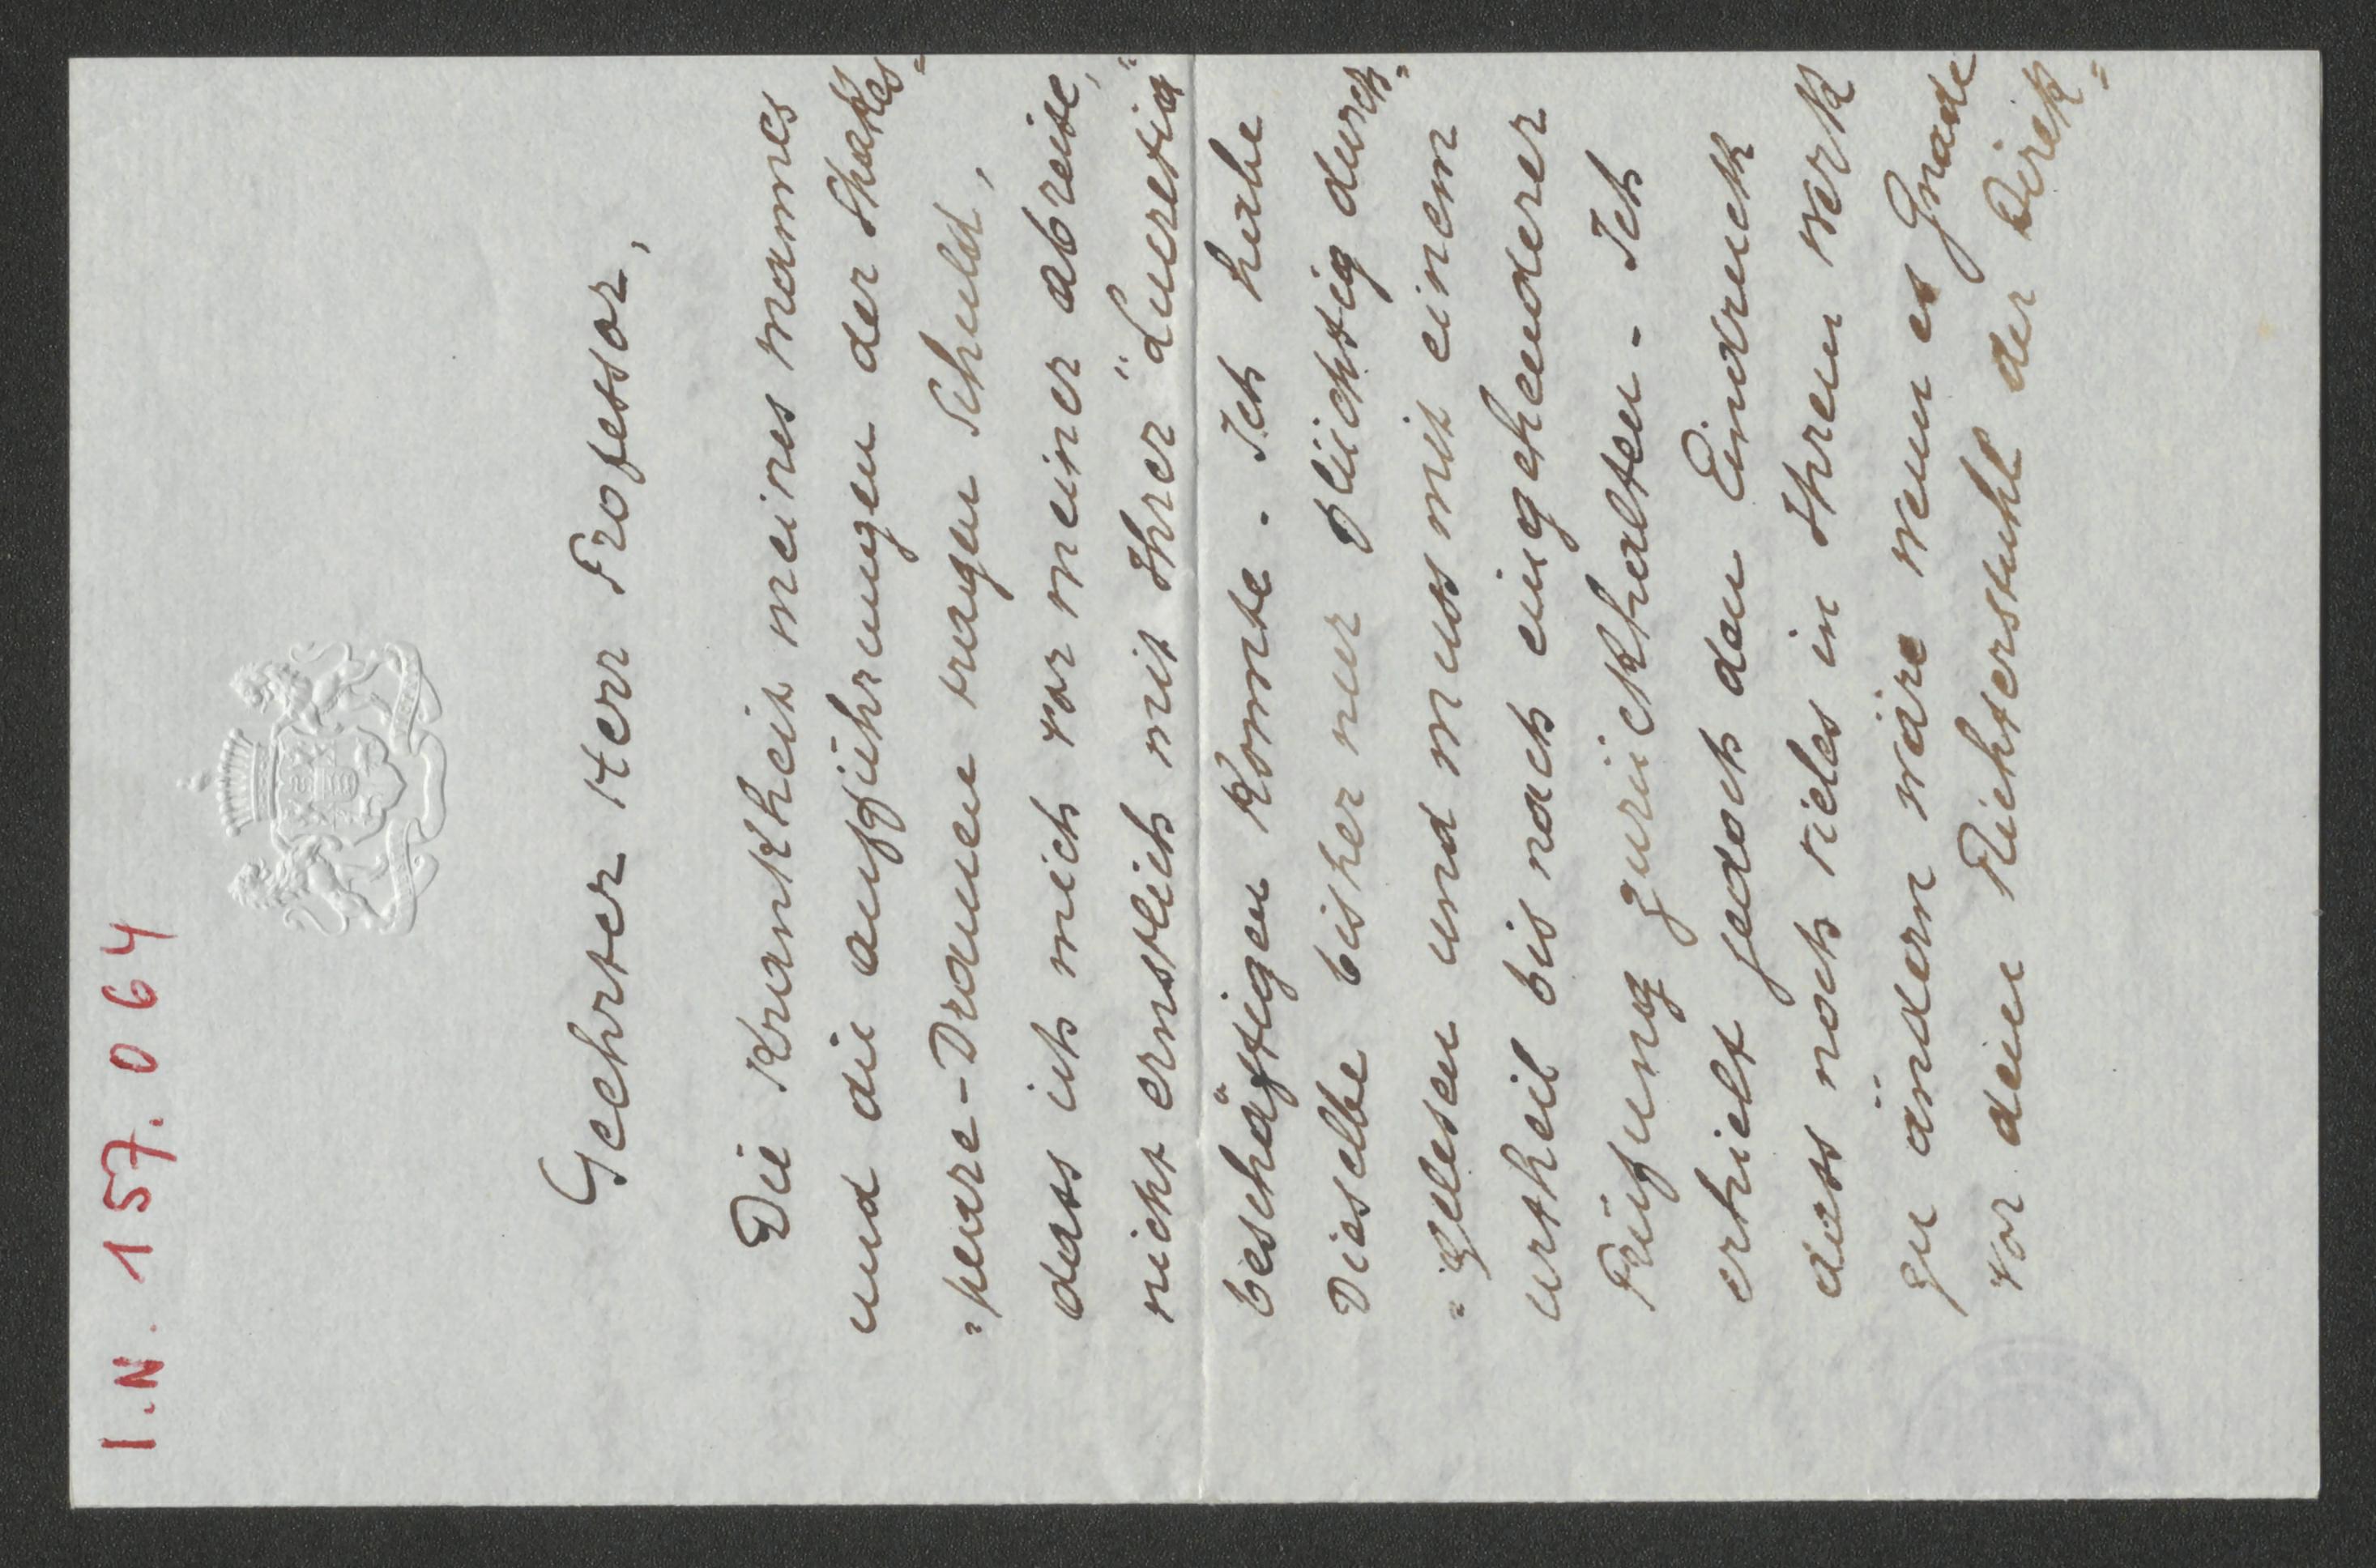 I.N. 157.064
Geehrter Herr Professor,
Die Krankheit meines Mannes
und die Aufführungen der Shakes=
=peare-Dramen tragen Schuld,
dass ich mich vor meiner Abreise,
nicht ernstlich mit Ihrer "Lucretia"
beschäftigen konnte. - Ich habe
Dieselbe bisher nur flüchtig durch=
=gelesen und muss mit einem
Urtheil bis nach eingehenderer
Prüfung zurückhalten. - Ich
erhielt jedoch den Eindruck
dass noch vieles in Ihrem Werk
zu ändern wäre wenn es Gnade
vor dem Richterstuhl der Direk=